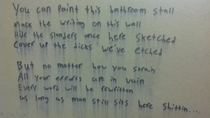 You can paint this bathroom stall
Mask the writing on this wall
Hide the slanders once here sketched
Cover up the dicks we've etched
But no matter how you
All your efforts are in vain
Every word will be rewritten
As long as man still sits here shittin...